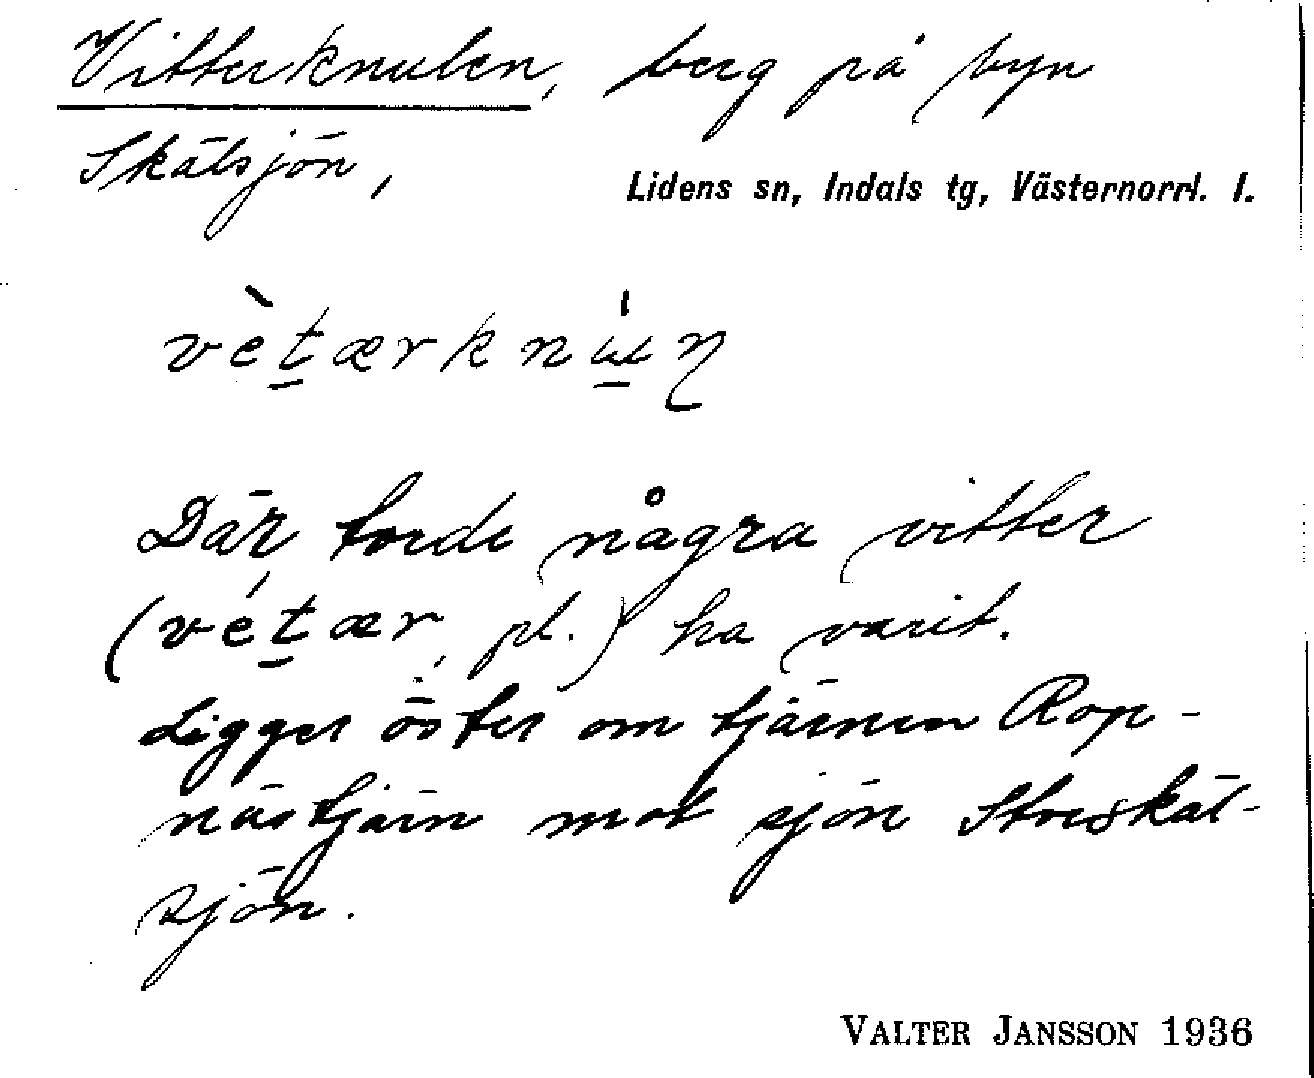 Vitterknulen, berg på byn
Skälsjön,
Lidens sn, Indals tg, Västernorrl. l.
vèt̲ærknu̲̍ɳ
Där torde några vitter
(vét̲ær, pl.) ha varit.
Ligger öster om tjärnen Rop-
nästjärn mot sjön Storskäl-
sjön.
VALTER JANSSON 1936